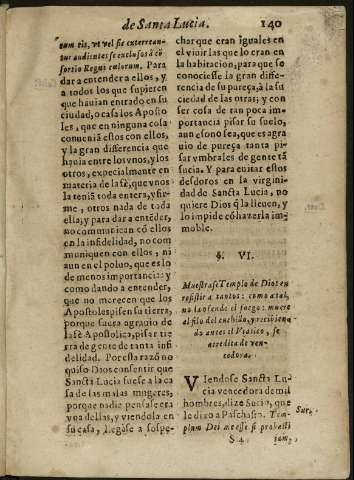 de Santa Lucia. 140
eum eis, vt vel sic exterrean-
tur audientes se exclusos à cõ
sortio Regni cælorum. Para
dar a entender a ellos, y
a todos los que supieren
que hauian entrado en su
ciudad, o casa los Aposto-
les, que en ninguna cosa
conueniã estos con ellos,
y la gran differencia que
hauia entre los vnos, y los
otros, especialmente en
materia de la fè, que vnos
la teniã toda entera, y fir-
me, otros nada de toda
ella, y para dar a entẽder,
no communicar cõ ellos
en la infidelidad, no com
muniquen con ellos, ni
aun en el poluo, que es lo
de menos importancia: y
como dando a entender,
que no merecen que los
Apostoles pisen su tierra,
porque fuera agrauio de
la fè Apostolica, pisar tie
rra de gente de tanta infi
delidad. Por esta razõ no
quiso Dios consentir que
Sancta Lucia fuese a la ca
sa de las malas mugeres,
porque nadie pensase era
por ellas, y viendola en
su casa, llegàse a sospe-
char que eran iguales en
el viuir las que lo eran en
la habitacion, para que se
conociesse la gran diffe-
rencia de su pureça, à la su
ciedad de las otras; y con
ser cosa de tan poca im-
portancia pisar su suelo,
aun eso no sea, que es agra
uio de pureça tanta pi-
sar vmbrales de gente tã
sucia. Y para euitar estos
desdoros en la virgini-
dad de Sancta Lucia, no
quiere Dios q̃ la lleuen, y
lo impide cõ hazerla im-
moble.
§. VI.
Muestrase Templo de Dios en
resistir a tantos: como a tal,
no la ofende el fuego: muere
al filo del cuchillo, y recibiẽn-
do antes el Viatico, se
acredita de ven-
cedora.
VIendose Sancta Lu
cia vencedora de mil
hombres, dize Surio, que
le dixo a Paschasio. Tem-
plum Dei me esse si probasti
Sur.
S 4. iam,